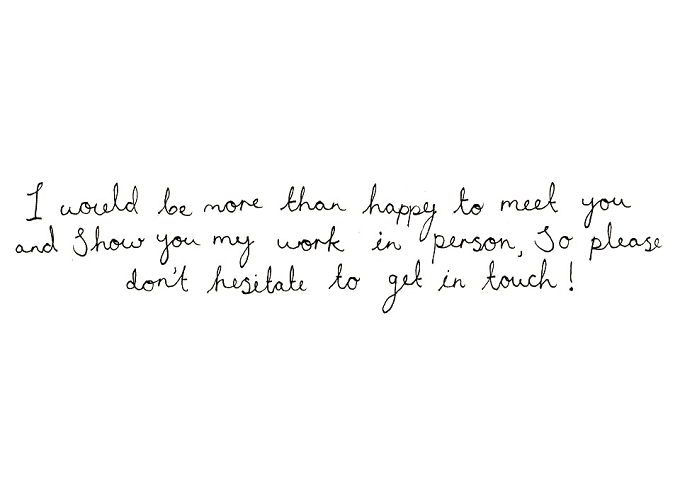 I would be more than happy to meet you
and show you my work in person, So please
don't hesitate to get in touch!